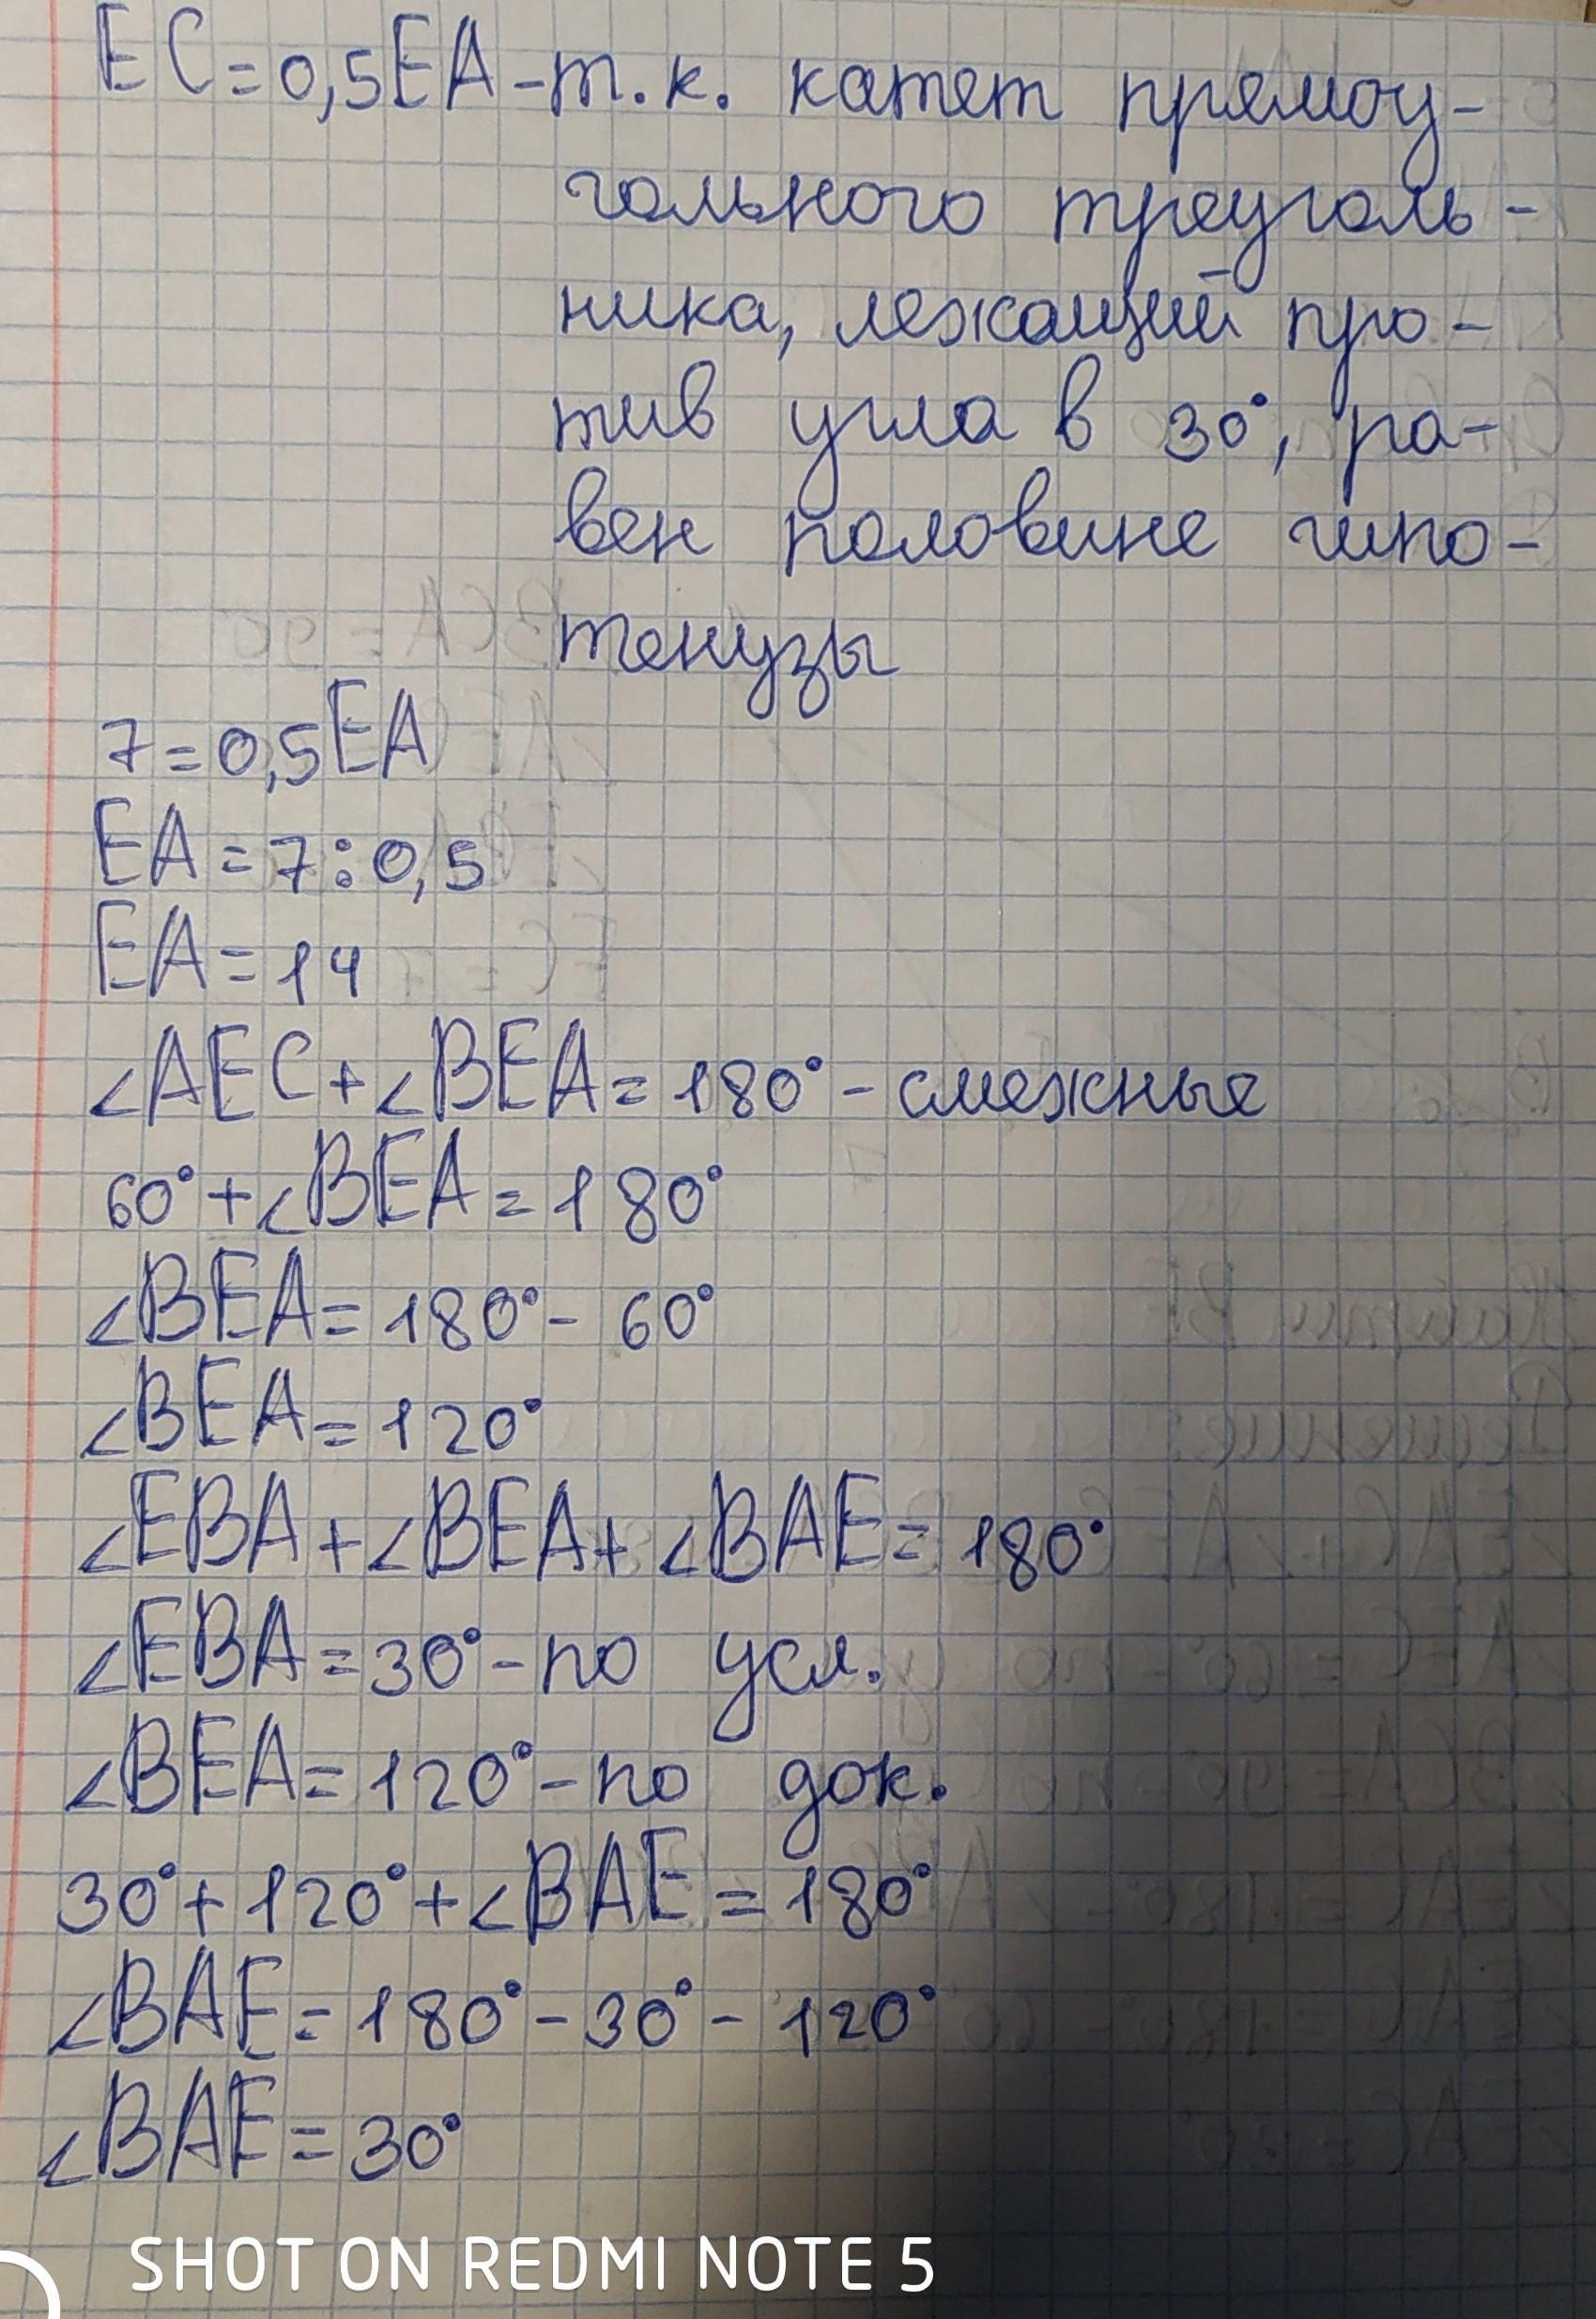 EC=0,5EA-т.к. катет прямоу-
гольного треуголь-
ника, лежащий про-
тив угла в 30°, ра-
вен половине гипо-
тенузы
7=0,5EA
EA=7:0,5
EA=14
∠AEC+∠BEA=180°-смежные
60°+∠BEA=180°
∠BEA=180°-60°
∠BEA=120°
∠EBA+∠BEA+∠BAE=180°
∠EBA=30°-по усл.
∠BEA=120°-по док.
30°+120°+∠BAE=180°
∠BAE=180°-30°-120°
∠BAE=30°
SHOT ON REDMI NOTE 5